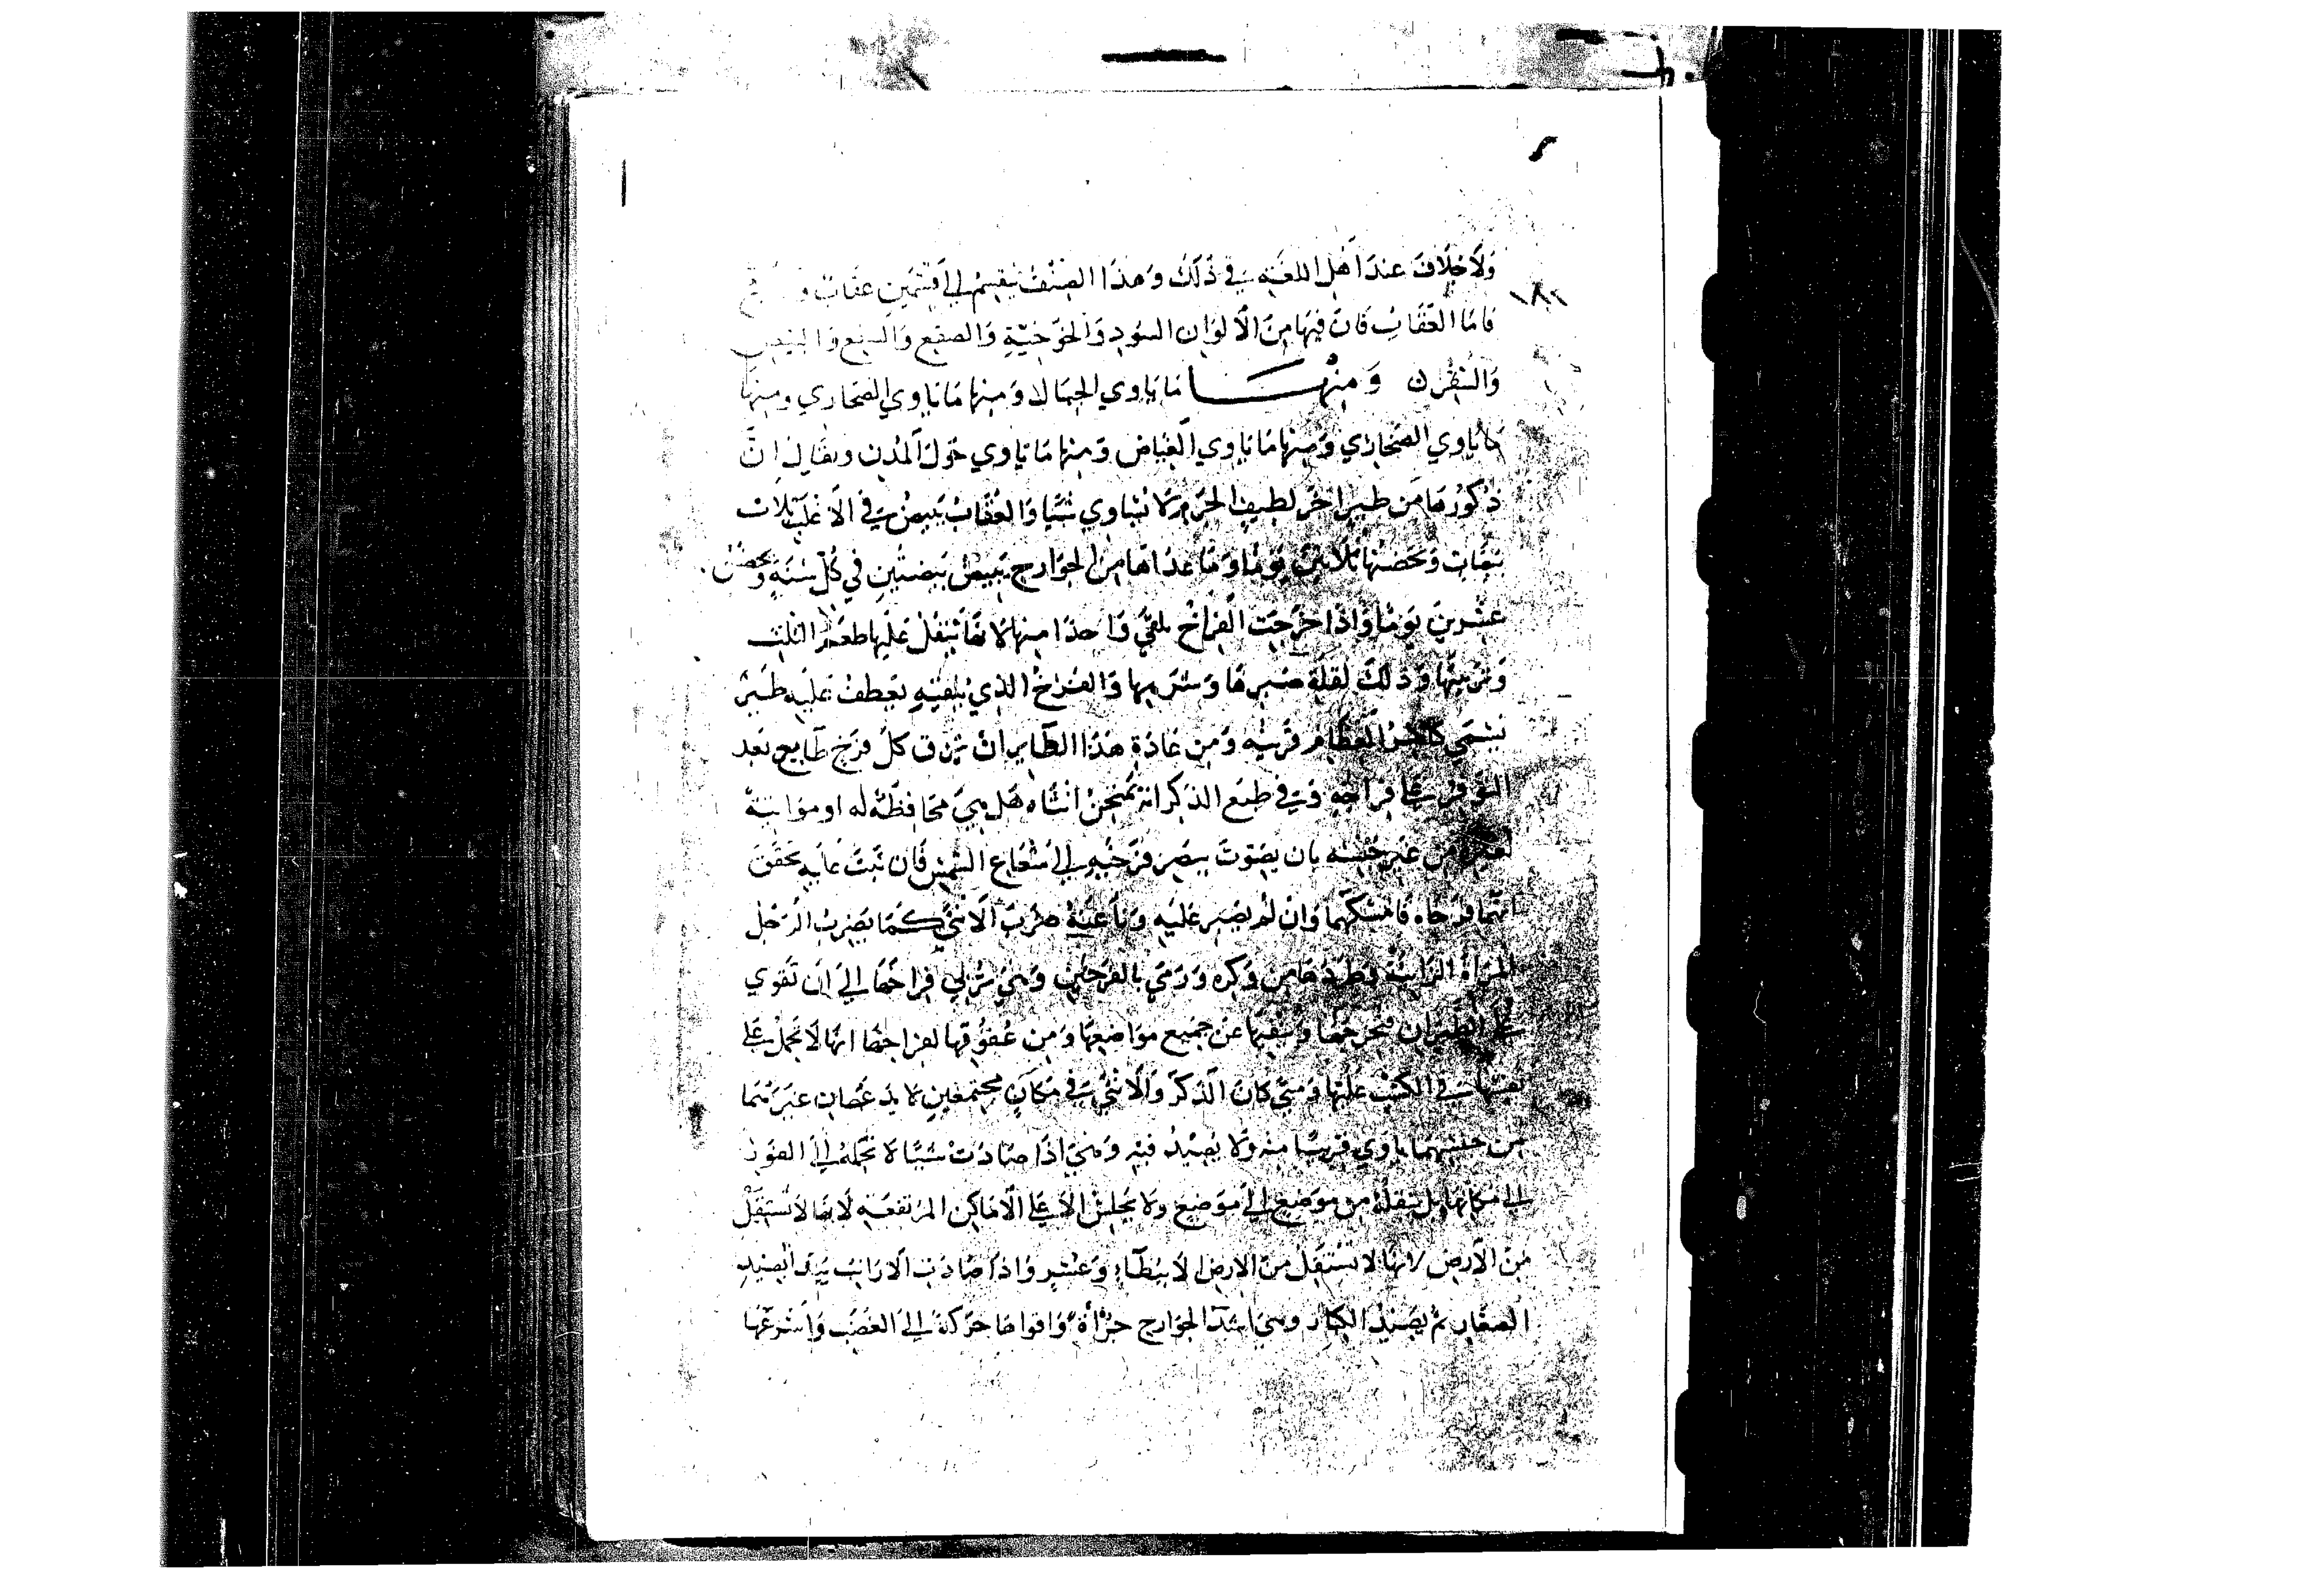 ١٨٢
وَلَا خِلَافَ عند اَهل اللغَه فى ذَلكَ وَهذا الصِنفُ ينقسِمُ الي قسمَينِ عقابٌ و
فامَا العُقَابُ فَانَ فيهَا مِنَ الاَلوَان السُود وَالخوَخيّةِ وَالصقع وَالسفع وَالبيض
وَالشقر ن وَمنْهَـــا مَا ياوي الجبَال وَمنها مَا ياوي الصَحاري ومنها
مَا ياوي الصَحارَي وَمنها مَا ياوي الغيَاض وَمنها مَا ياوي حَولَ المدُن ويقالُ انَّ
ذكُورُهَا مَن طيراخَر لطيفِ الجرَم لا تساوي شيًا وَالعُقابُ تَبيضُ فى الاَغلَب ثلاث
بيَضَات وَتحضنُهَا ثلَاثينَ يومًا وَمَا عدَاهَا من الجوَارح يَبيضُ بَيضَتينِ في كُلّ سَنَةٍ وَيحضُنُ
عشرينَ يَومًا وَاذَا خرَجَت الفراخُ يلقي وَاحدًا منها لانهَا يَثقلُ عَليها طعمُ الثلثة
وَترْبيتهَا وَذلكَ لقلة صَبرهَا وَ وَالفرْخُ الذي يلقيَه يَعطف عَليه طَيرٌ
يسَمي كاسر العظَام فَربيه وَمن عَادَة هذَا الطَاير انْ يزق كل فرَخ ضايع بَعد
على فراخه وَفى طبَع الذكر انه يمتحنُ انثَاه هَل هيَ محَافظَة له او موَاتيَة
لغيره من غير جنسه بان يصَوب بصَر فرخيه الي شعَاع الشَمس فان ثبتَ عَليه تحققَ
انهما فرخاه فامسكهما وَانْ لَم يصَبر عَليَه وَنبا عَنه ضَربَ الاَنثي كمَا يضرِبُ الرَجل
المرَاة الزَانية وَطردَهَا من وَكره وَرَمي بالفرخين وَهي ترَبي فراخهَا الي اَن تقوي
على الطيران فتخرجهَا وَتنفيهَا عَن جَميع موَاضعهَا وَمن عُقوقها لفراخهَا انها لَا تحمل على
نفسها فى الكسب عليَها وَمتي كان الذكرَ وَالاَنثي فى مَكاَن مجتمعَين لا يدَعَان غيرهمَا
من جنسهما ياوي قريبًا منه وَلَا يصيدُ فيه وَهيَ اذَا صَادَت شيئًا لا تحملَهُ الي الفور
الي مكانها بل تنقلَه من موَضع الي مَوضع وَلَا تجلسُ الا على الاَماكن المرتفعَه لاَنهَا لَا تستقلُ
منَ الاَرض لانها لا تستقلُ منَ الارض الا ببُطَاءٍ وَعُسْرٍ وَاذَا صَادَت الاَرانبُ تبدَا بصَيد
الصغَار ثم بصَيد الكبار وهيَ اشدُ الجوَارح جرْأةً وَاقواهَا حرَكة الي الغضَب وَاسرعهَا